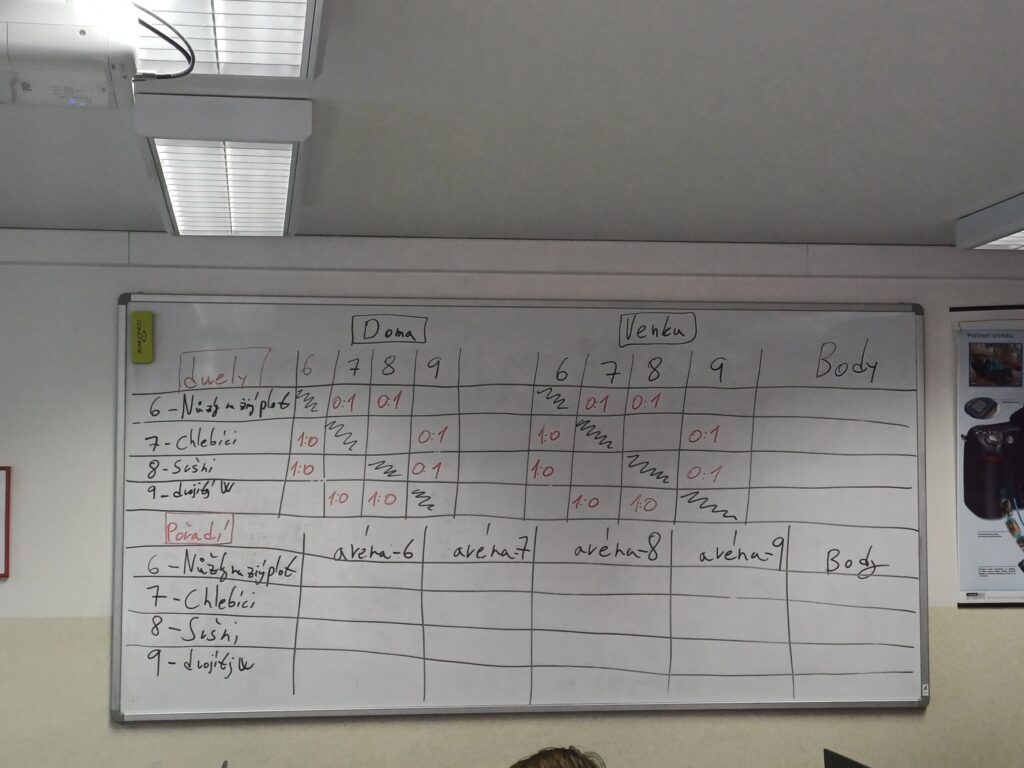 Doma Venku
duely 6 7 8 9 6 7 8 9 Body
6 - Nůžky na živý plot 0:1 0:1 0:1 0:1
7 - Chlebíci 1:0 0:1 1:0 0:1
8 - Sushi 1:0 0:1 1:0 0:1
9 - dvojitý W 1:0 1:0 1:0 1:0
Pořadí aréna-6 aréna-7 aréna-8 aréna-9 Body
6 - Nůžky na živý plot
7 - Chlebíci
8 - Sushi
9 - dvojitý W
Pořízení snímku